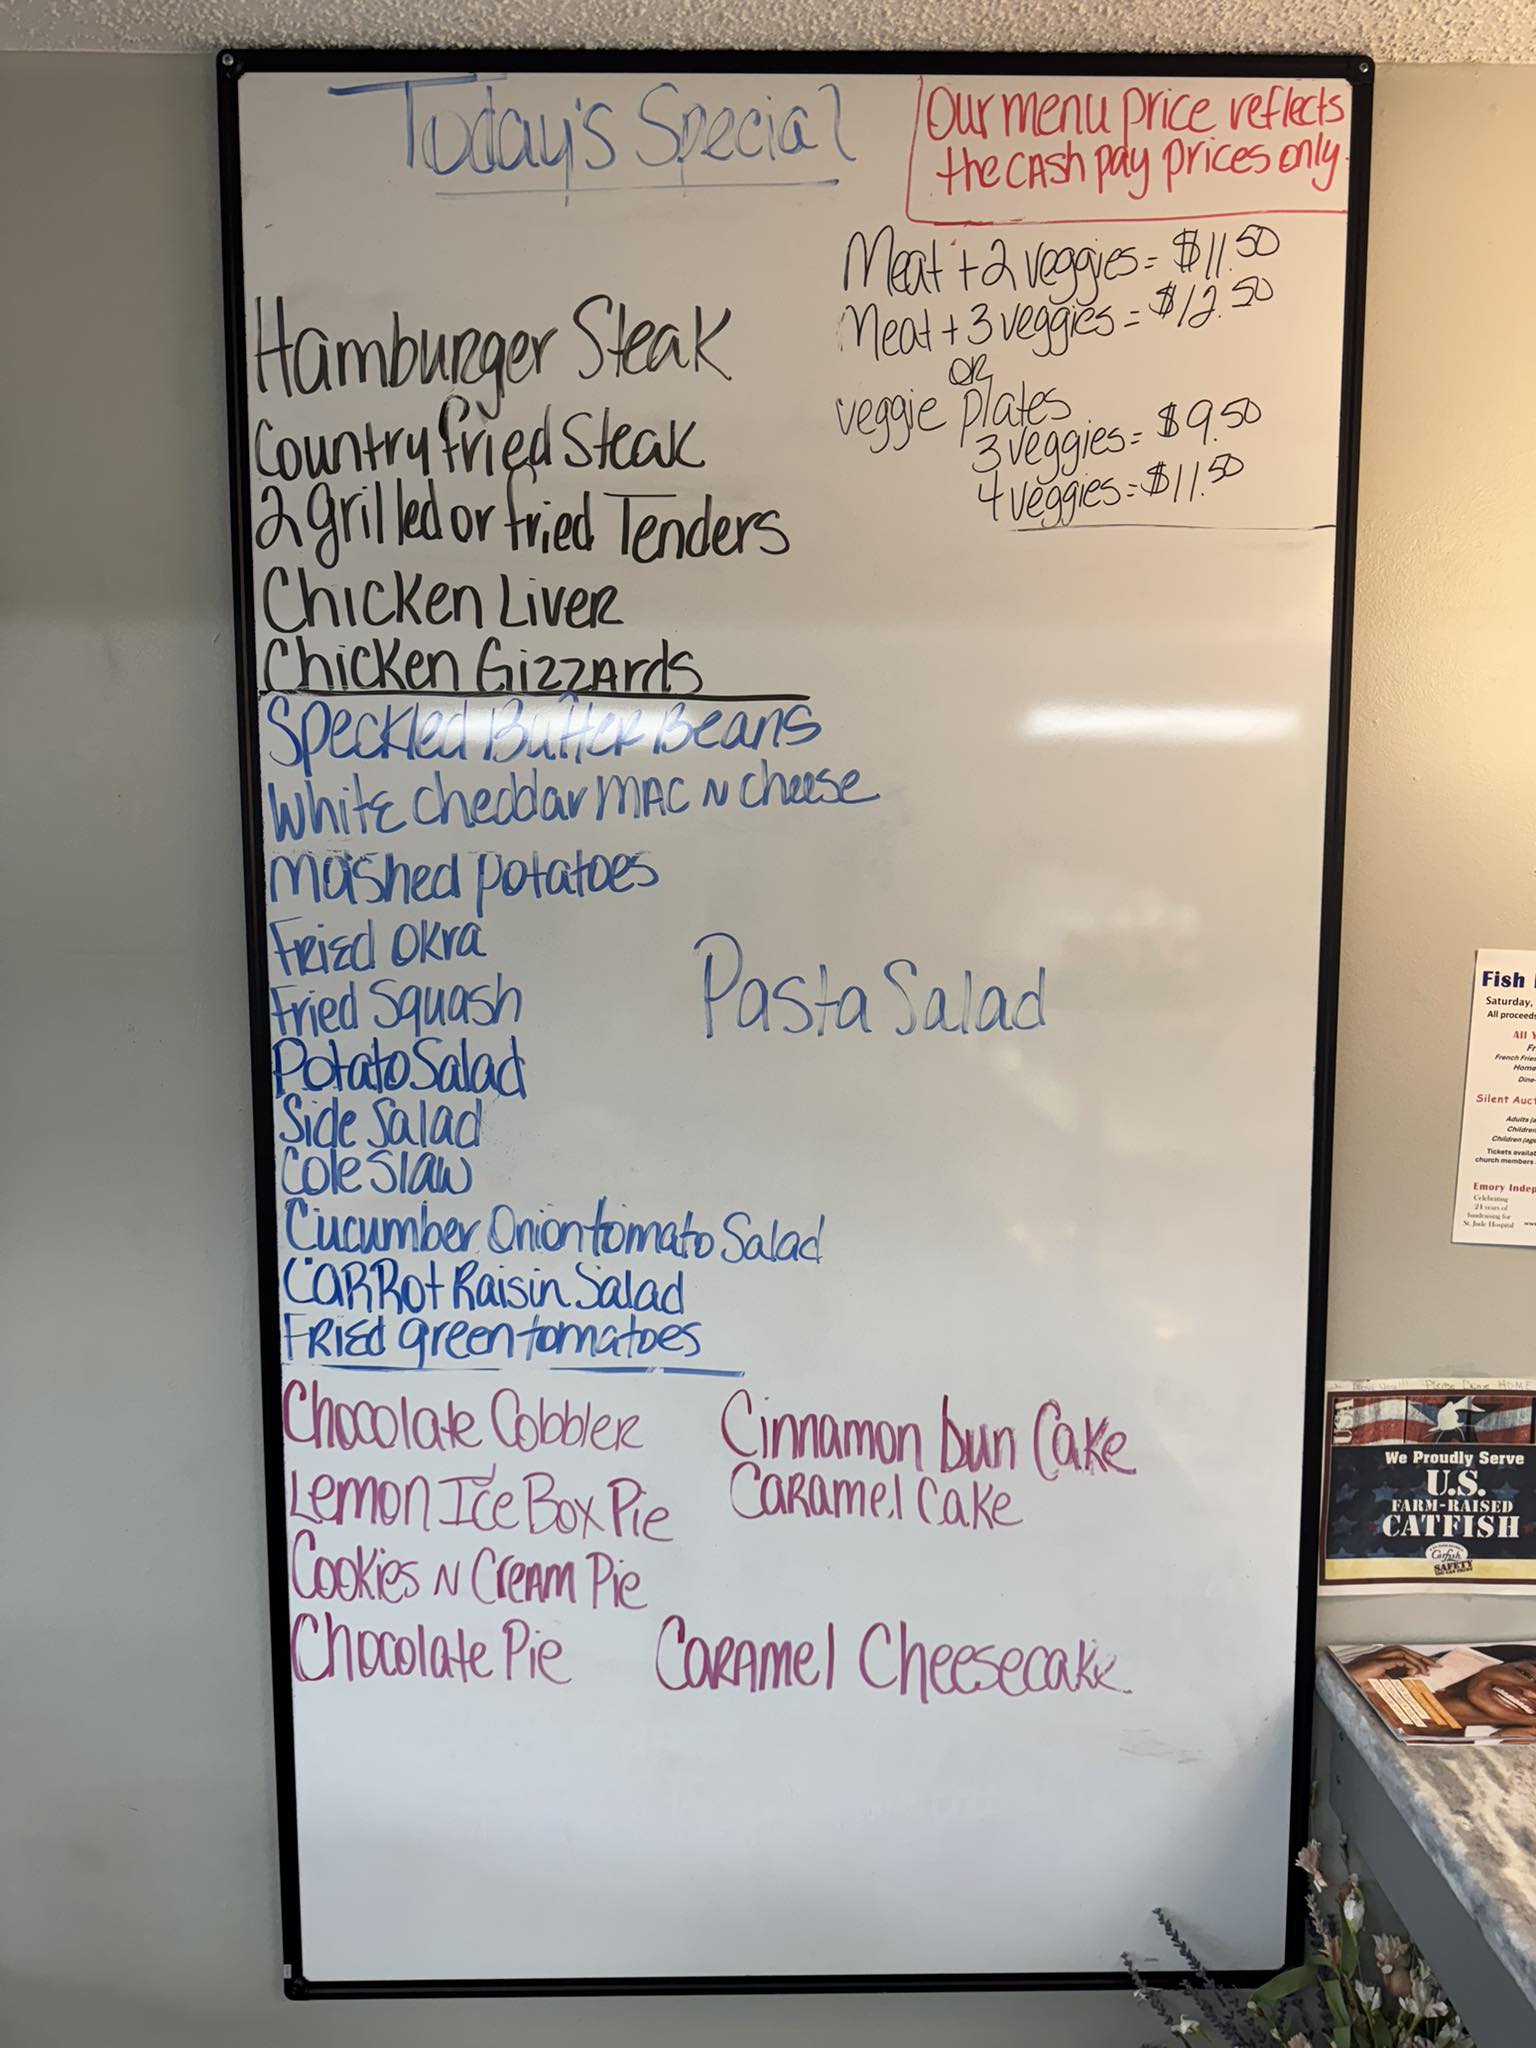 Today's Special
Our menu price reflects
the cash pay prices only.
Meat + 2 veggies = $11.50
Meat + 3 veggies = $12.50
OR
veggie plates
3 veggies = $9.50
4 veggies = $11.50
Hamburger Steak
Country fried Steak
2 grilled or fried Tenders
Chicken Liver
Chicken Gizzards
Speckled Butter Beans
White cheddar MAC N cheese
Mashed potatoes
Fried Okra
Fried Squash
Pasta Salad
Potato Salad
Side Salad
Cole Slaw
Cucumber Onion tomato Salad
Carrot Raisin Salad
Fried green tomatoes
Chocolate Cobbler
Cinnamon bun Cake
Lemon Ice Box Pie
Caramel Cake
Cookies N Cream Pie
Chocolate Pie
Caramel Cheesecake
Fish
Saturday,
All proceeds
All Y
French Fries
Home
Dine-
Silent Auct
Adults
Children
Children (age
Tickets availab
church members
Emory Indep
Celebrating
21 years of
fundraising for
St. Jude Hospital
USA
We Proudly Serve
U.S.
FARM-RAISED
CATFISH
Catfish
SAFETY